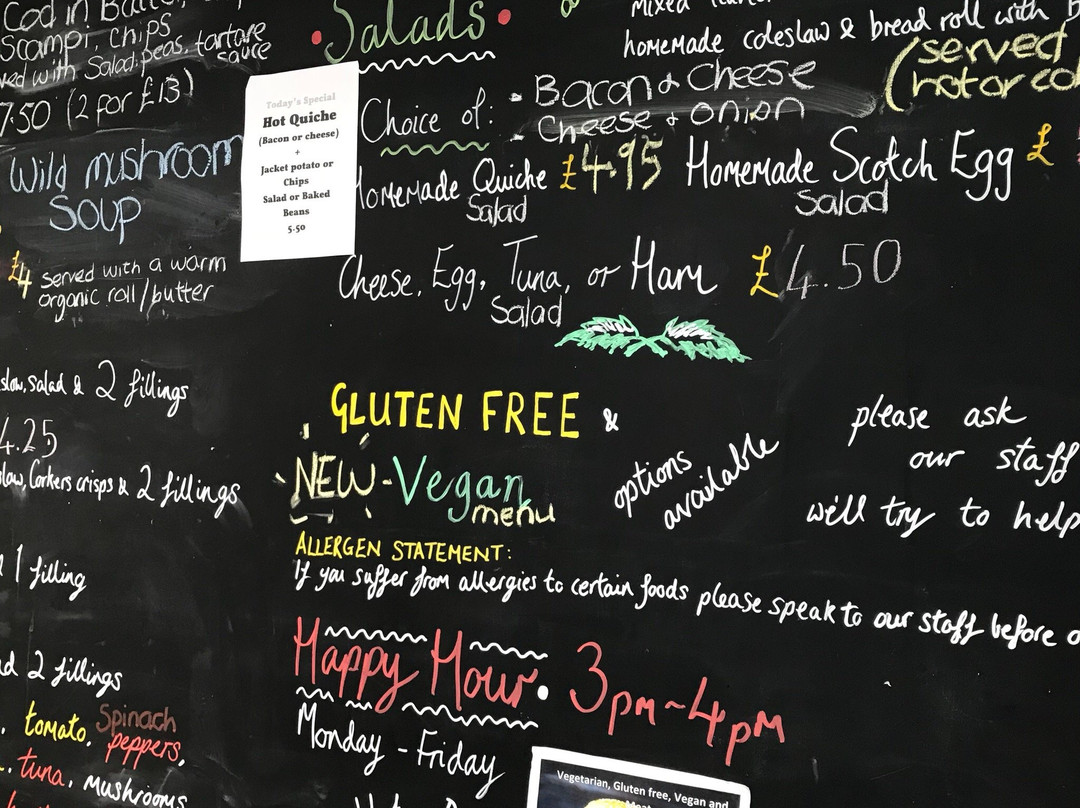 Cod in
Scampi, chips
served with Salad, peas, tartare
sauce
7.50 (2 for £13)
Wild mushroom
Soup
£4 served with a warm
organic roll/butter
slaw, Salad & 2 fillings
4.25
slaw, Corkers crisps & 2 fillings
1 filling
2 fillings
tomato, Spinach
peppers,
tuna, mushrooms
Today's Special
Hot Quiche
(Bacon or cheese)
+
Jacket potato or
Chips
Salad or Baked
Beans
5.50
Salads
homemade coleslaw & bread roll with
(served
hot or
Choice of: - Bacon & Cheese
- Cheese & onion
Homemade Quiche £4.95 Homemade Scotch Egg £
Salad Salad
Cheese, Egg, Tuna, or Ham £4.50
Salad
GLUTEN FREE &
NEW - Vegan
menu
options
available
please ask
our staff
we'll try to help
ALLERGEN STATEMENT:
If you suffer from allergies to certain foods please speak to our staff before
Happy Hour. 3pm ~ 4pm
Monday - Friday
Vegetarian, Gluten free, Vegan and